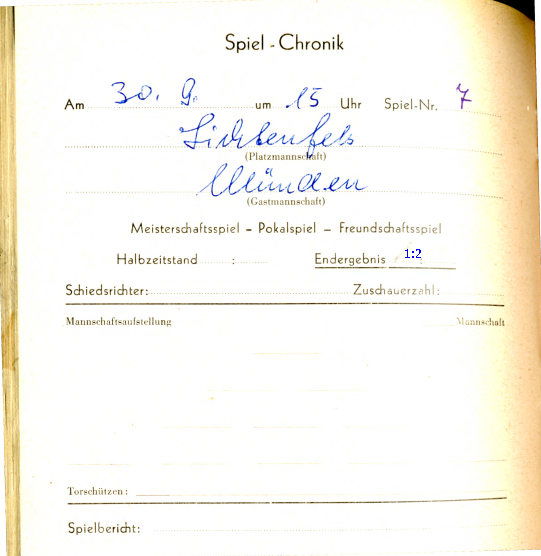 Spiel - Chronik
Am 30. 9. um 15 Uhr Spiel-Nr. 7
Lichtenfels
(Platzmannschaft)
Münden
(Gastmannschaft)
Meisterschaftsspiel – Pokalspiel – Freundschaftsspiel
Halbzeitstand : Endergebnis 1:2
Schiedsrichter: Zuschauerzahl:
Mannschaftsaufstellung Mannschaft
Torschützen:
Spielbericht: